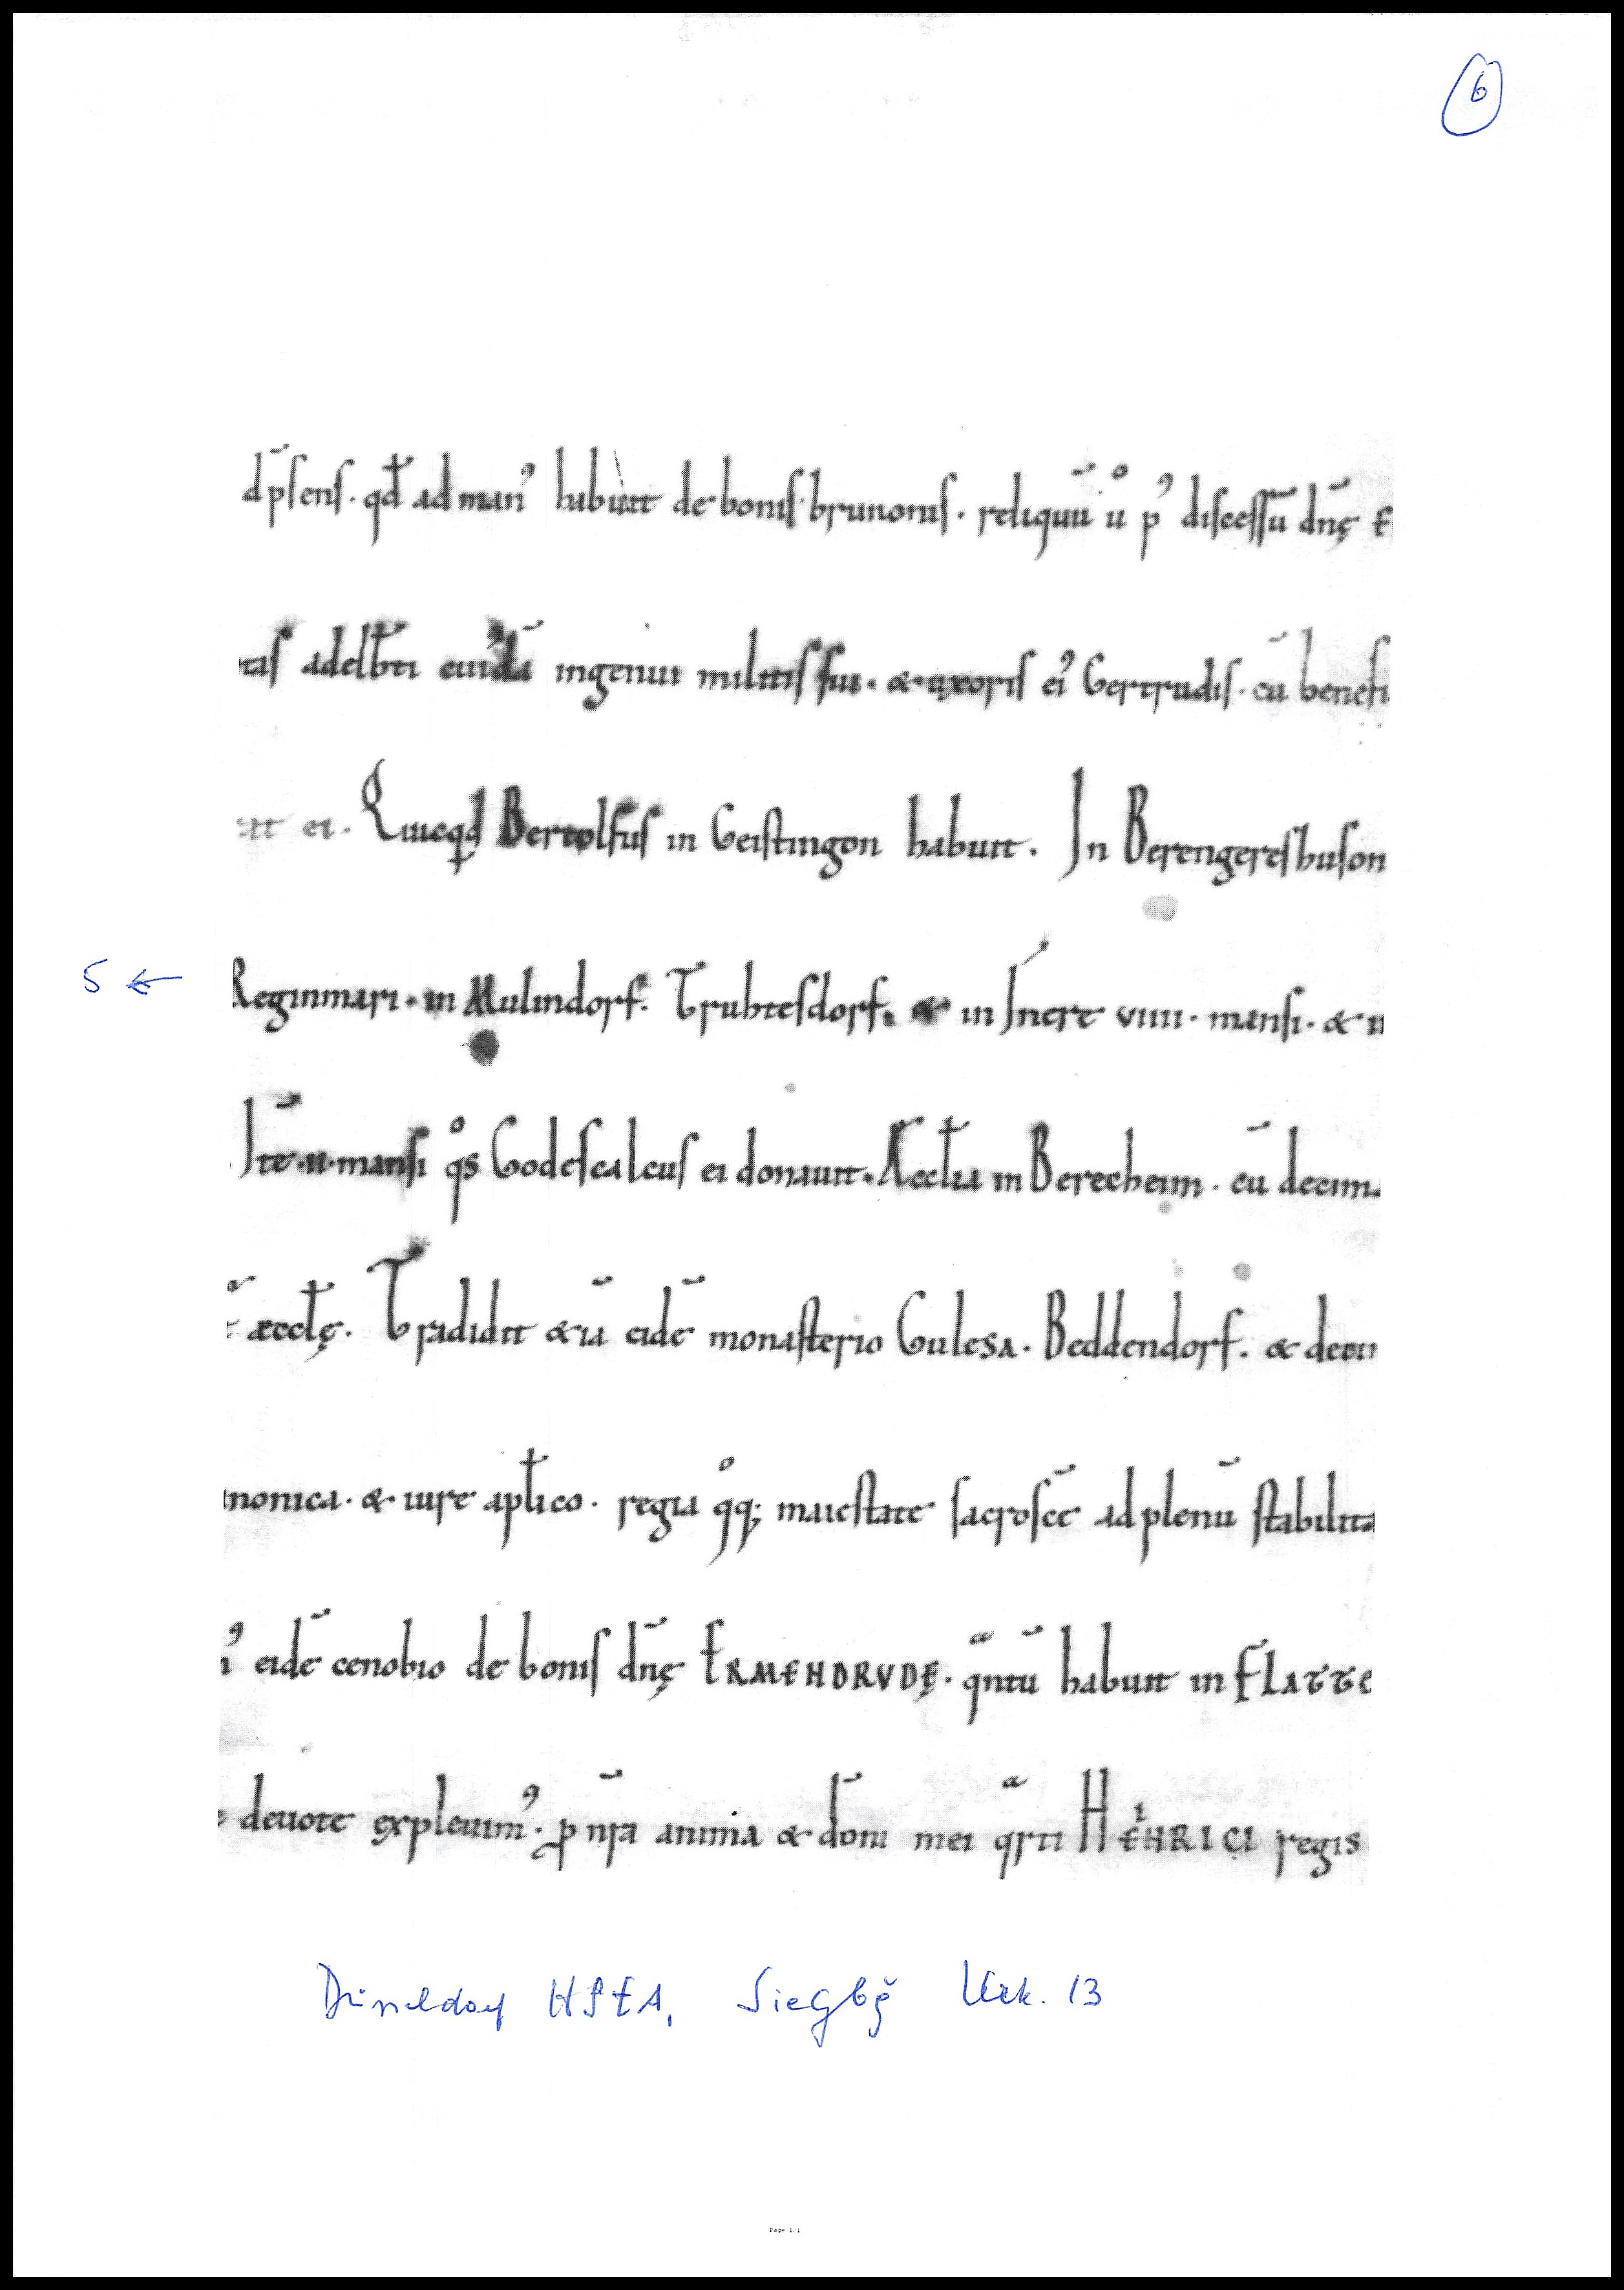 6
dp̄sens · qđ ad man᾿ habuit de bonis brunonis · reliquū ů p᾿ discessū dn̄ę E
tis adelb̄ti cuidā ingenui militis sui · & uxoris ei᾿ Gertrudis · cū benefi
it ei · Quicqđ Bertolfus in Geistingon habuit . In Berengereshuson
5 ← Reginmari · in Mulindorf . Truhtesdorf . & in Inere viiii · mansi · &
Itē · ii · mansi qͦs Godescalcus ei donauit · Aeccłia in Berecheim · cū decim
æccłę . Tradidit &iā eidē monasterio Gulesa . Beddendorf . & decim
nonica · & iure apłico · regia qͦq; maiestate sacrosc̄ē ad plenū stabilita
᾿ eidē cenobio de bonis dn̄ę ERMENDRVDĘ · qͣntū habuit in FLATTE
deuote expleuim᾿ · ꝓ nr̄a anima & dom̄ mei qͣrti HEINRICI regis
Düsseldorf HStA, Siegbg Urk. 13
Page 1/1